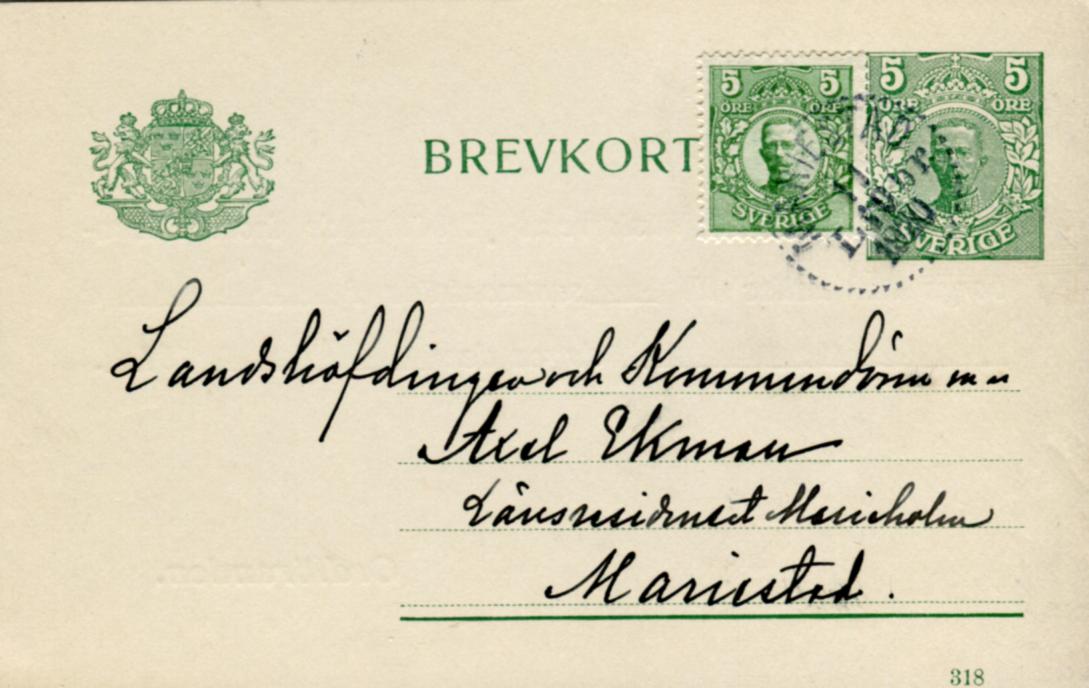 5 5
ÖRE ÖRE
SVERIGE
5 5
ÖRE ÖRE
SVERIGE
BREVKORT
1920
Landshöfdingen och Kommendören m m
Axel Ekman
Länsresidenset Marieholm
Mariestad.
318